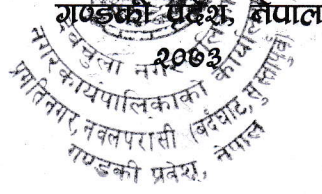 गण्डकी प्रदेश, नेपाल
२०७३
देवचुला नगरपालिका
नगर कार्यपालिकाको कार्यालय
प्रगतिनगर, नवलपरासी (बर्दघाट, सुस्तापूर्व)
गण्डकी प्रदेश, नेपाल